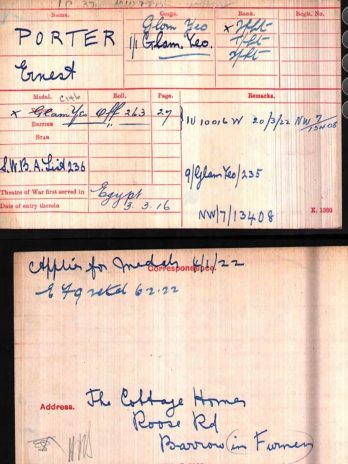 Name. Corps. Rank. Regtl. No.
PORTER Glam Yeo x 2/Lt
1/1 Glam. Yeo. T/Lt
Ernest
Medal. Roll. Page. Remarks.
Club
x Glam Yeo Off 263 27 IU 10016 W 20/3/22 NW 7/13408
Star
S.W.B. A. List 236 9/Glam Yeo/235
Theatre of War first served in Egypt
Date of entry therein 3.3.16 NW/7/13408 K. 1380
Applies for Medals 4/1/22
Correspondence.
E F9 6.2.22
Address. The Cottage Homes
Roose Rd
Barrow (in Furness)